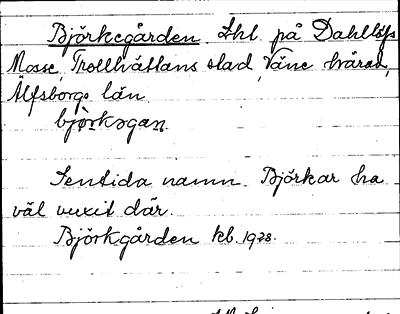 Björkegården. Lht. på Dahllöfs
Mosse, Trollhättans stad, Väne härad,
Älfsborgs län.
björkəgan.
Sentida namn. Björkar ha
väl vuxit där.
Björkgården kb. 1928.